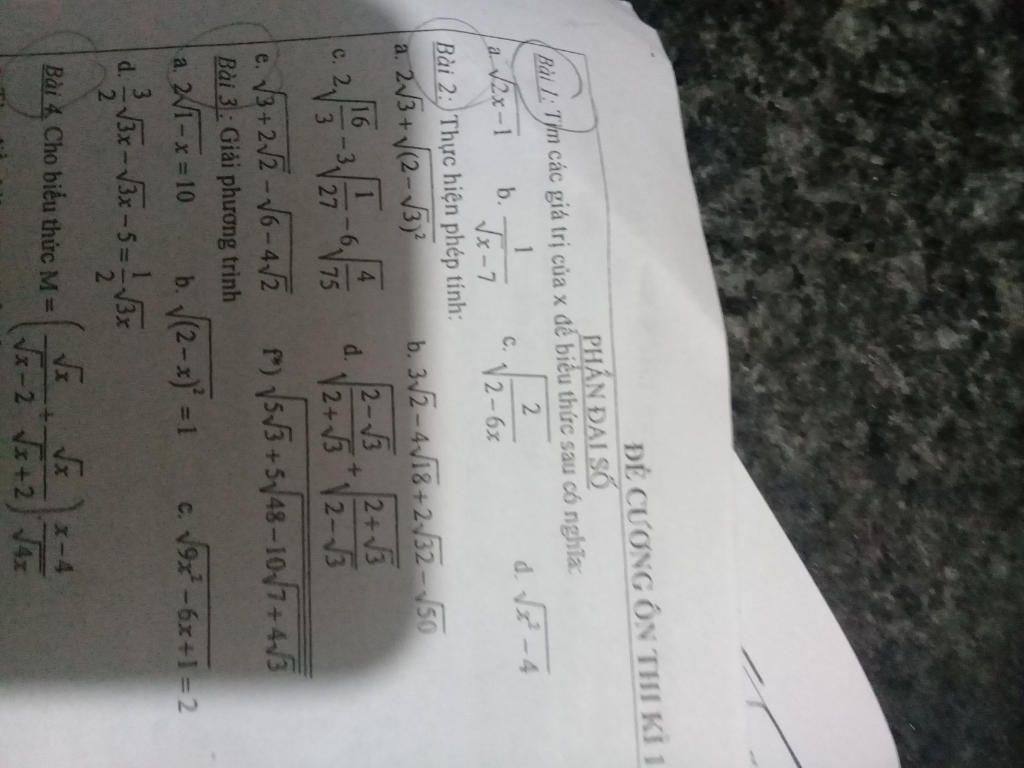 ĐỀ CƯƠNG ÔN THI KÌ 1
PHẦN ĐẠI SỐ
Bài 1: Tìm các giá trị của x để biểu thức sau có nghĩa:
a. √(2x−1) b. 1/√(x−7) c. √(2/(2−6x)) d. √(x²−4)
Bài 2: Thực hiện phép tính:
a. 2√3+√((2−√3)²) b. 3√2−4√18+2√32−√50
c. 2√(16/3)−3√(1/27)−6√(4/75) d. √((2−√3)/(2+√3))+√((2+√3)/(2−√3))
e. √(3+2√2)−√(6−4√2) f*) √(5√3+5√(48−10√(7+4√3)))
Bài 3: Giải phương trình
a. 2√(1−x)=10 b. √((2−x)²)=1 c. √(9x²−6x+1)=2
d. 3/2√(3x)−√(3x)−5=1/2√(3x)
Bài 4. Cho biểu thức M = (√x/(√x−2)+√x/(√x+2)).(x−4)/√(4x)